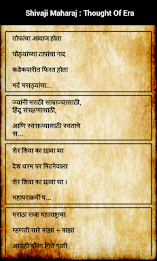 Shivaji Maharaj : Thought Of Era
तोफांचा आवाज होता
घोड्यांच्या टापांचा नाद
कडेकपारीत फिरत होता
मर्द मराठ्यांचा...
ज्यांनी मराठी साम्राज्यासाठी,
हिंदू संरक्षणासाठी,
आणि स्वराज्यासाठी स्वताचे
स...
शेर शिवा का छावा था
देश धरम पर मिटनेवाला
शेर शिवा का छावा था ।
महापराक्रमी प...
मराठा राजा महाराष्ट्राचा
म्हणती सारे माझा – माझा
आजही गौरव गिते गाती